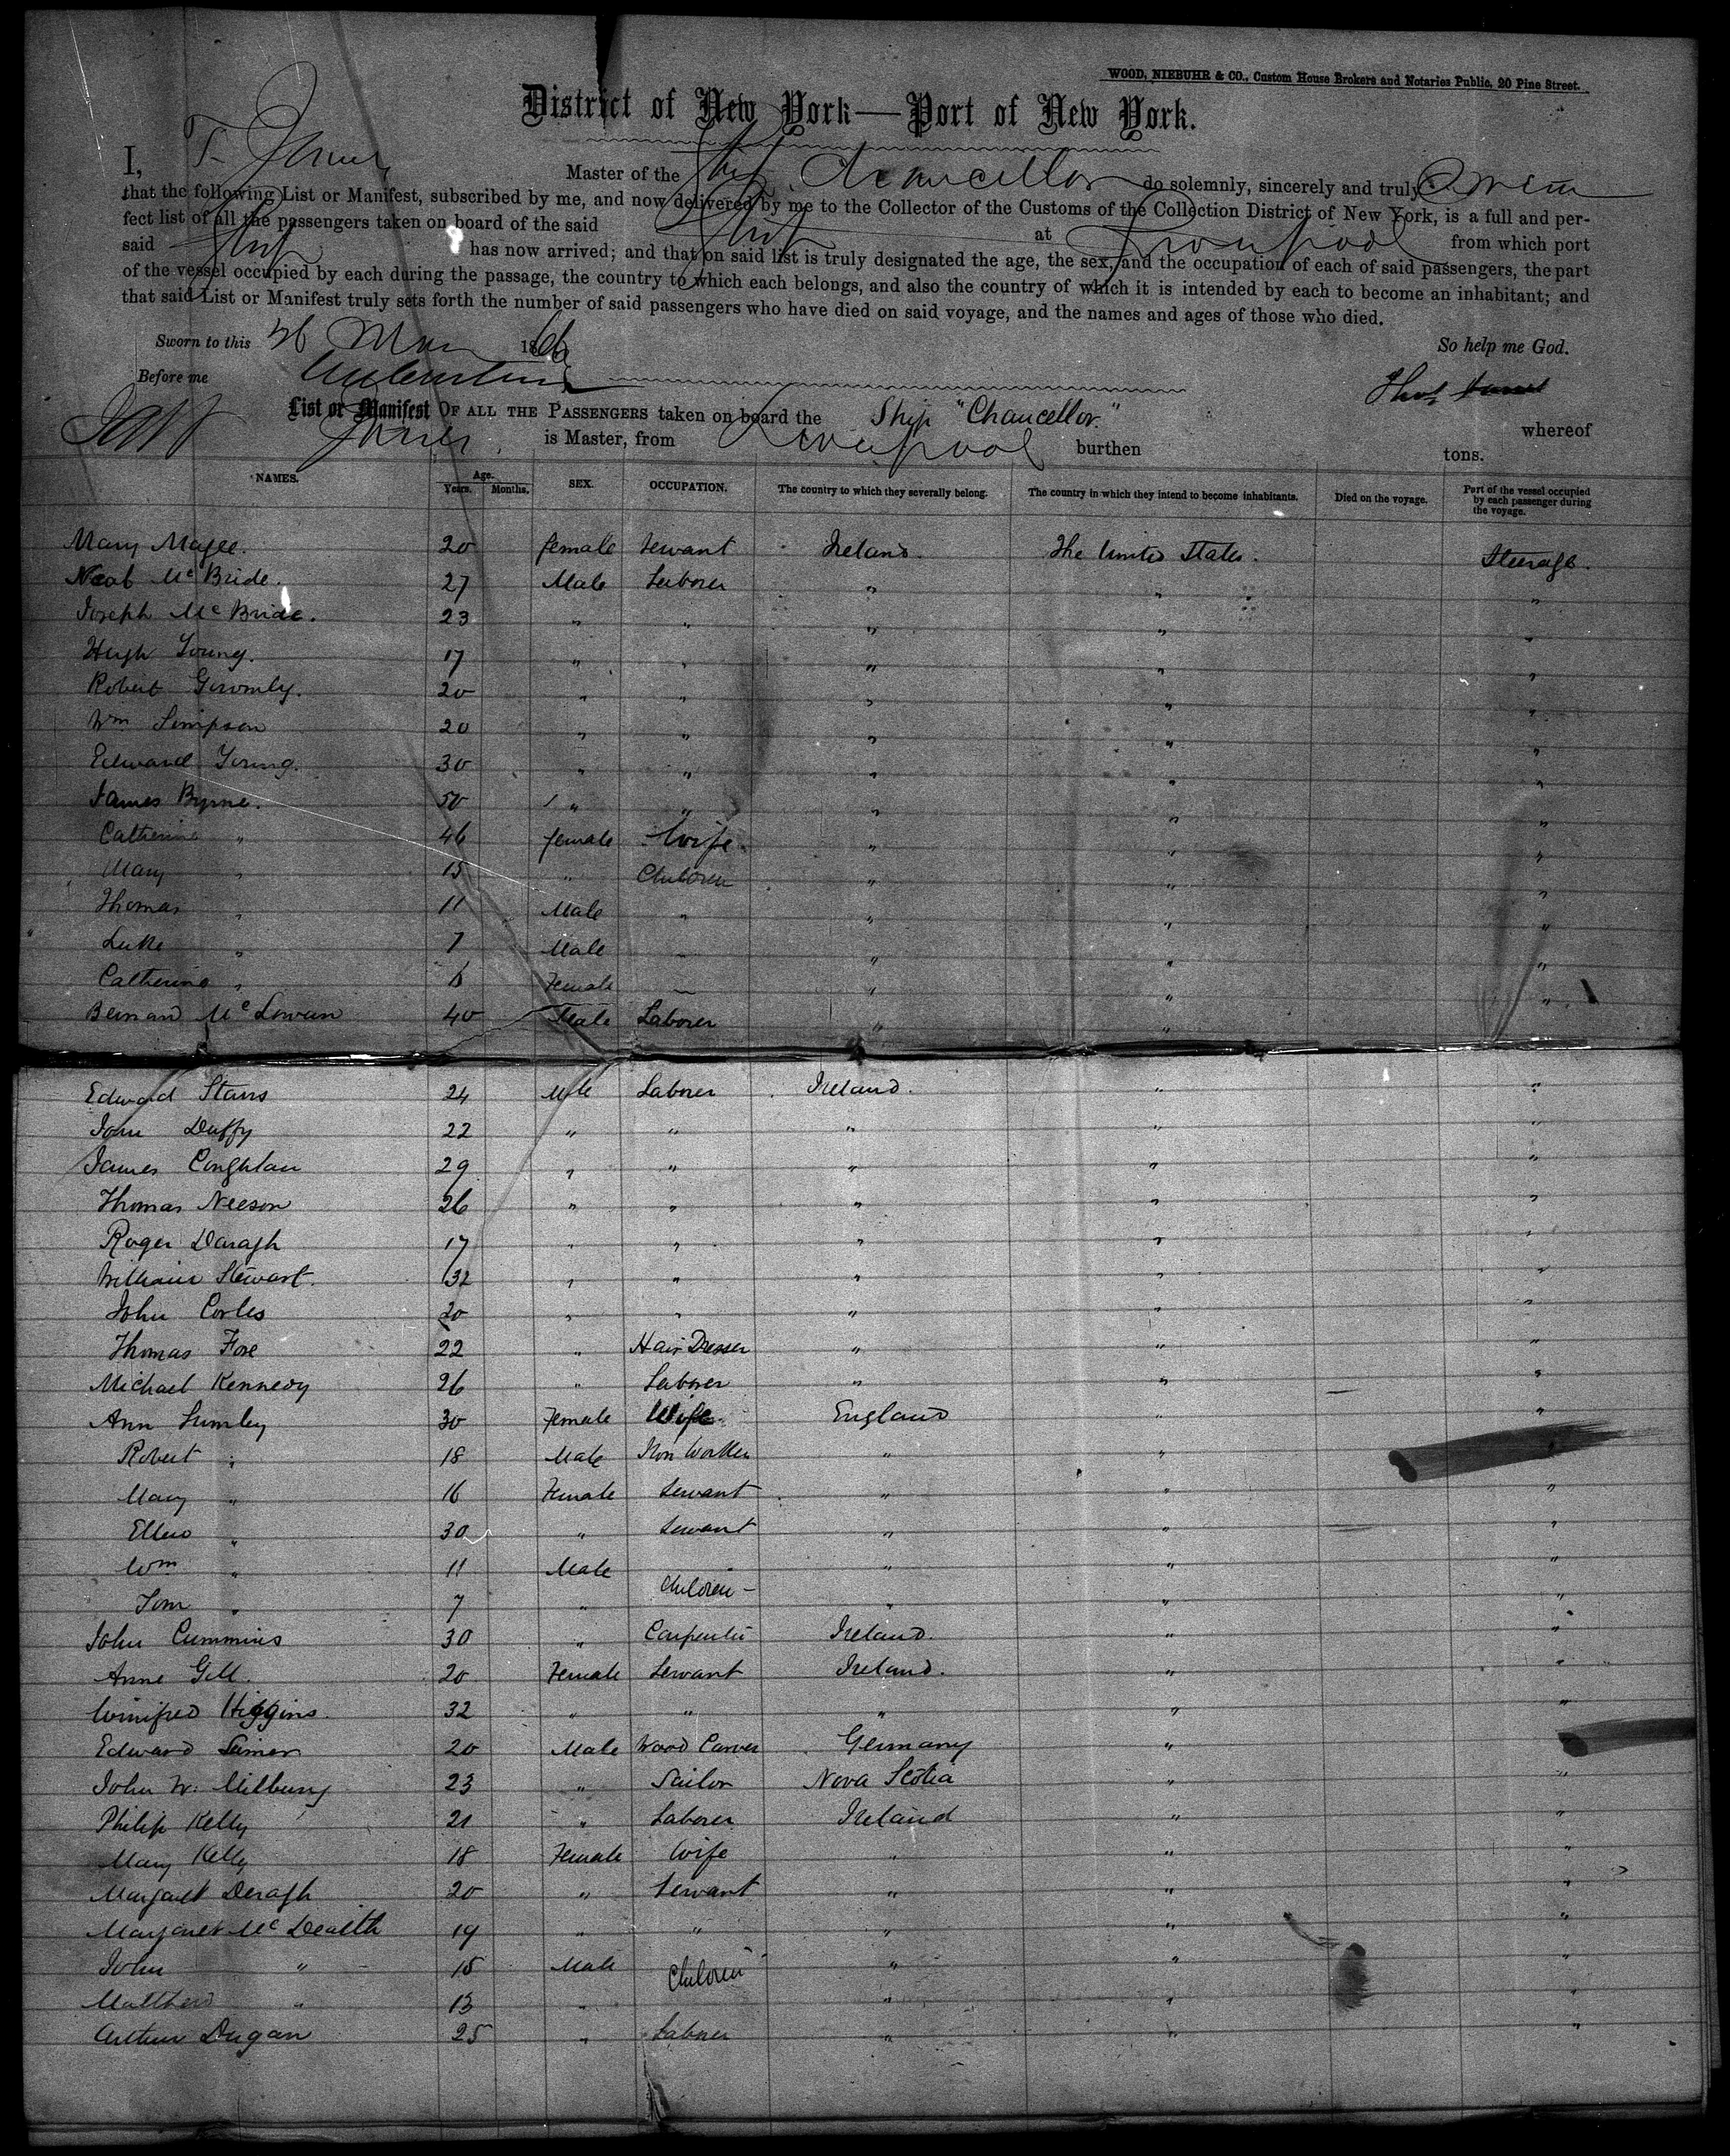 WOOD, NIEBUHR & CO., Custom House Brokers and Notaries Public, 20 Pine Street.
District of New York—Port of New York.
I, T. Jones Master of the Ship Chancellor do solemnly, sincerely and truly Swear
that the following List or Manifest, subscribed by me, and now delivered by me to the Collector of the Customs of the Collection District of New York, is a full and per-
fect list of all the passengers taken on board of the said Ship at Liverpool from which port
said Ship has now arrived; and that on said list is truly designated the age, the sex, and the occupation of each of said passengers, the part
of the vessel occupied by each during the passage, the country to which each belongs, and also the country of which it is intended by each to become an inhabitant; and
that said List or Manifest truly sets forth the number of said passengers who have died on said voyage, and the names and ages of those who died.
Sworn to this 26 1866 So help me God.
Before me Thos
List or Manifest OF ALL THE PASSENGERS taken on board the Ship "Chancellor." whereof
Jones is Master, from Liverpool burthen tons.
NAMES. Age. Years. Months. SEX. OCCUPATION. The country to which they severally belong. The country in which they intend to become inhabitants. Died on the voyage. Part of the vessel occupied by each passenger during the voyage.
Mary Magee. 20 female Servant Ireland. The United States. Steerage.
Mc Bride. 27 Male Laborer " " "
Joseph Mc Bride. 23 " " " " "
Hugh Young. 17 " " " " "
Robert Gormly. 20 " " " " "
Wm Simpson 20 " " " " "
Edward Young. 30 " " " " "
James Byrne. 50 " " " " "
Catherine " 46 female Wife. " " "
Mary " 15 " Children " " "
Thomas " 11 Male " " " "
Luke " 7 Male " " " "
Catherine " 6 Female " " " "
Bernard Mc 40 Male Laborer " "
Edward Stars 24 Male Laborer Ireland. " "
John Duffy 22 " " " " "
James Coughlan 29 " " " " "
Thomas Neeson 26 " " " " "
Roger Daragh 17 " " " " "
William Stewart. 32 " " " " "
John Corles 20 " " " " "
Thomas Fore 22 " Hair Dresser " " "
Michael Kennedy 26 " Laborer " " "
Ann Lumley 30 Female Wife. England " "
Robert " 18 Male Iron Worker " " "
Mary " 16 Female Servant " " "
Ellen " 30 " Servant " " "
Wm " 11 Male " " "
Tom " 7 " Children " " "
John Cummins 30 " Carpenter Ireland. " "
Anne Gill. 20 Female Servant Ireland. " "
Winifred Higgins. 32 " " " " "
Edward 20 Male Wood Carver Germany " "
John W. Milbury 23 " Sailor Nova Scotia " "
Philip Kelly 21 " Laborer Ireland " "
Mary Kelly 18 Female Wife " " "
Margaret Deragh 20 " Servant " " "
Margaret Mc Dealth 19 " " " " "
John " 15 Male Children " " "
Matthew " 13 " " " "
Arthur Dugan 25 " Laborer " " "